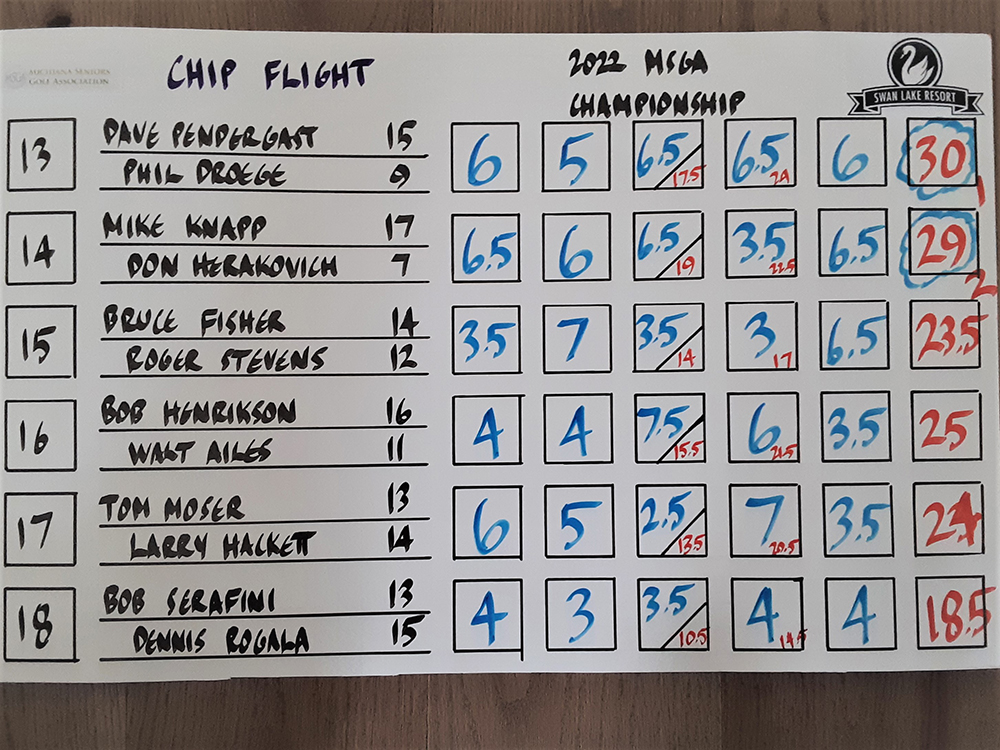 MICHIANA SENIORS
GOLF ASSOCIATION
CHIP FLIGHT
2022 MSGA
CHAMPIONSHIP
SWAN LAKE RESORT
13 DAVE PENDERGAST 15 6 5 6.5 17.5 6.5 24 6 30 1
PHIL DROEGE 9
14 MIKE KNAPP 17 6.5 6 6.5 19 3.5 22.5 6.5 29 2
DON HERAKOVICH 7
15 BRUCE FISHER 14 3.5 7 3.5 14 3 17 6.5 23.5
ROGER STEVENS 12
16 BOB HENRIKSON 16 4 4 7.5 15.5 6 21.5 3.5 25
WALT AILES 11
17 TOM MOSER 13 6 5 2.5 13.5 7 20.5 3.5 24
LARRY HACKETT 14
18 BOB SERAFINI 13 4 3 3.5 10.5 4 14.5 4 18.5
DENNIS ROGALA 15